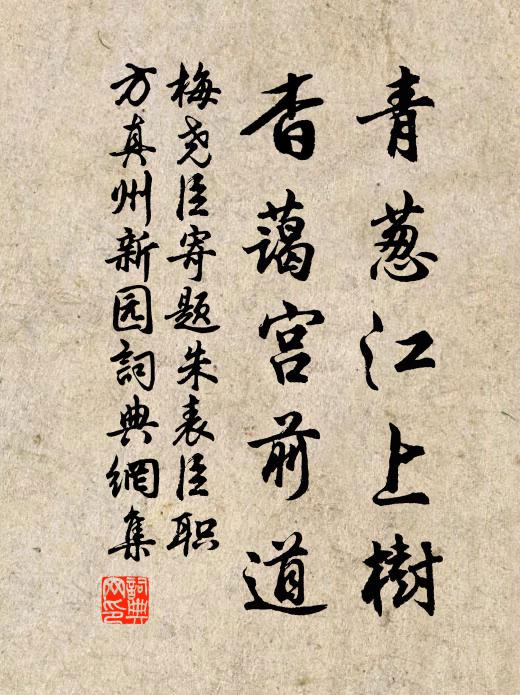 青葱江上樹
杳藹宫前道
梅尧臣寄題朱表臣职
方真州新园詞典網集